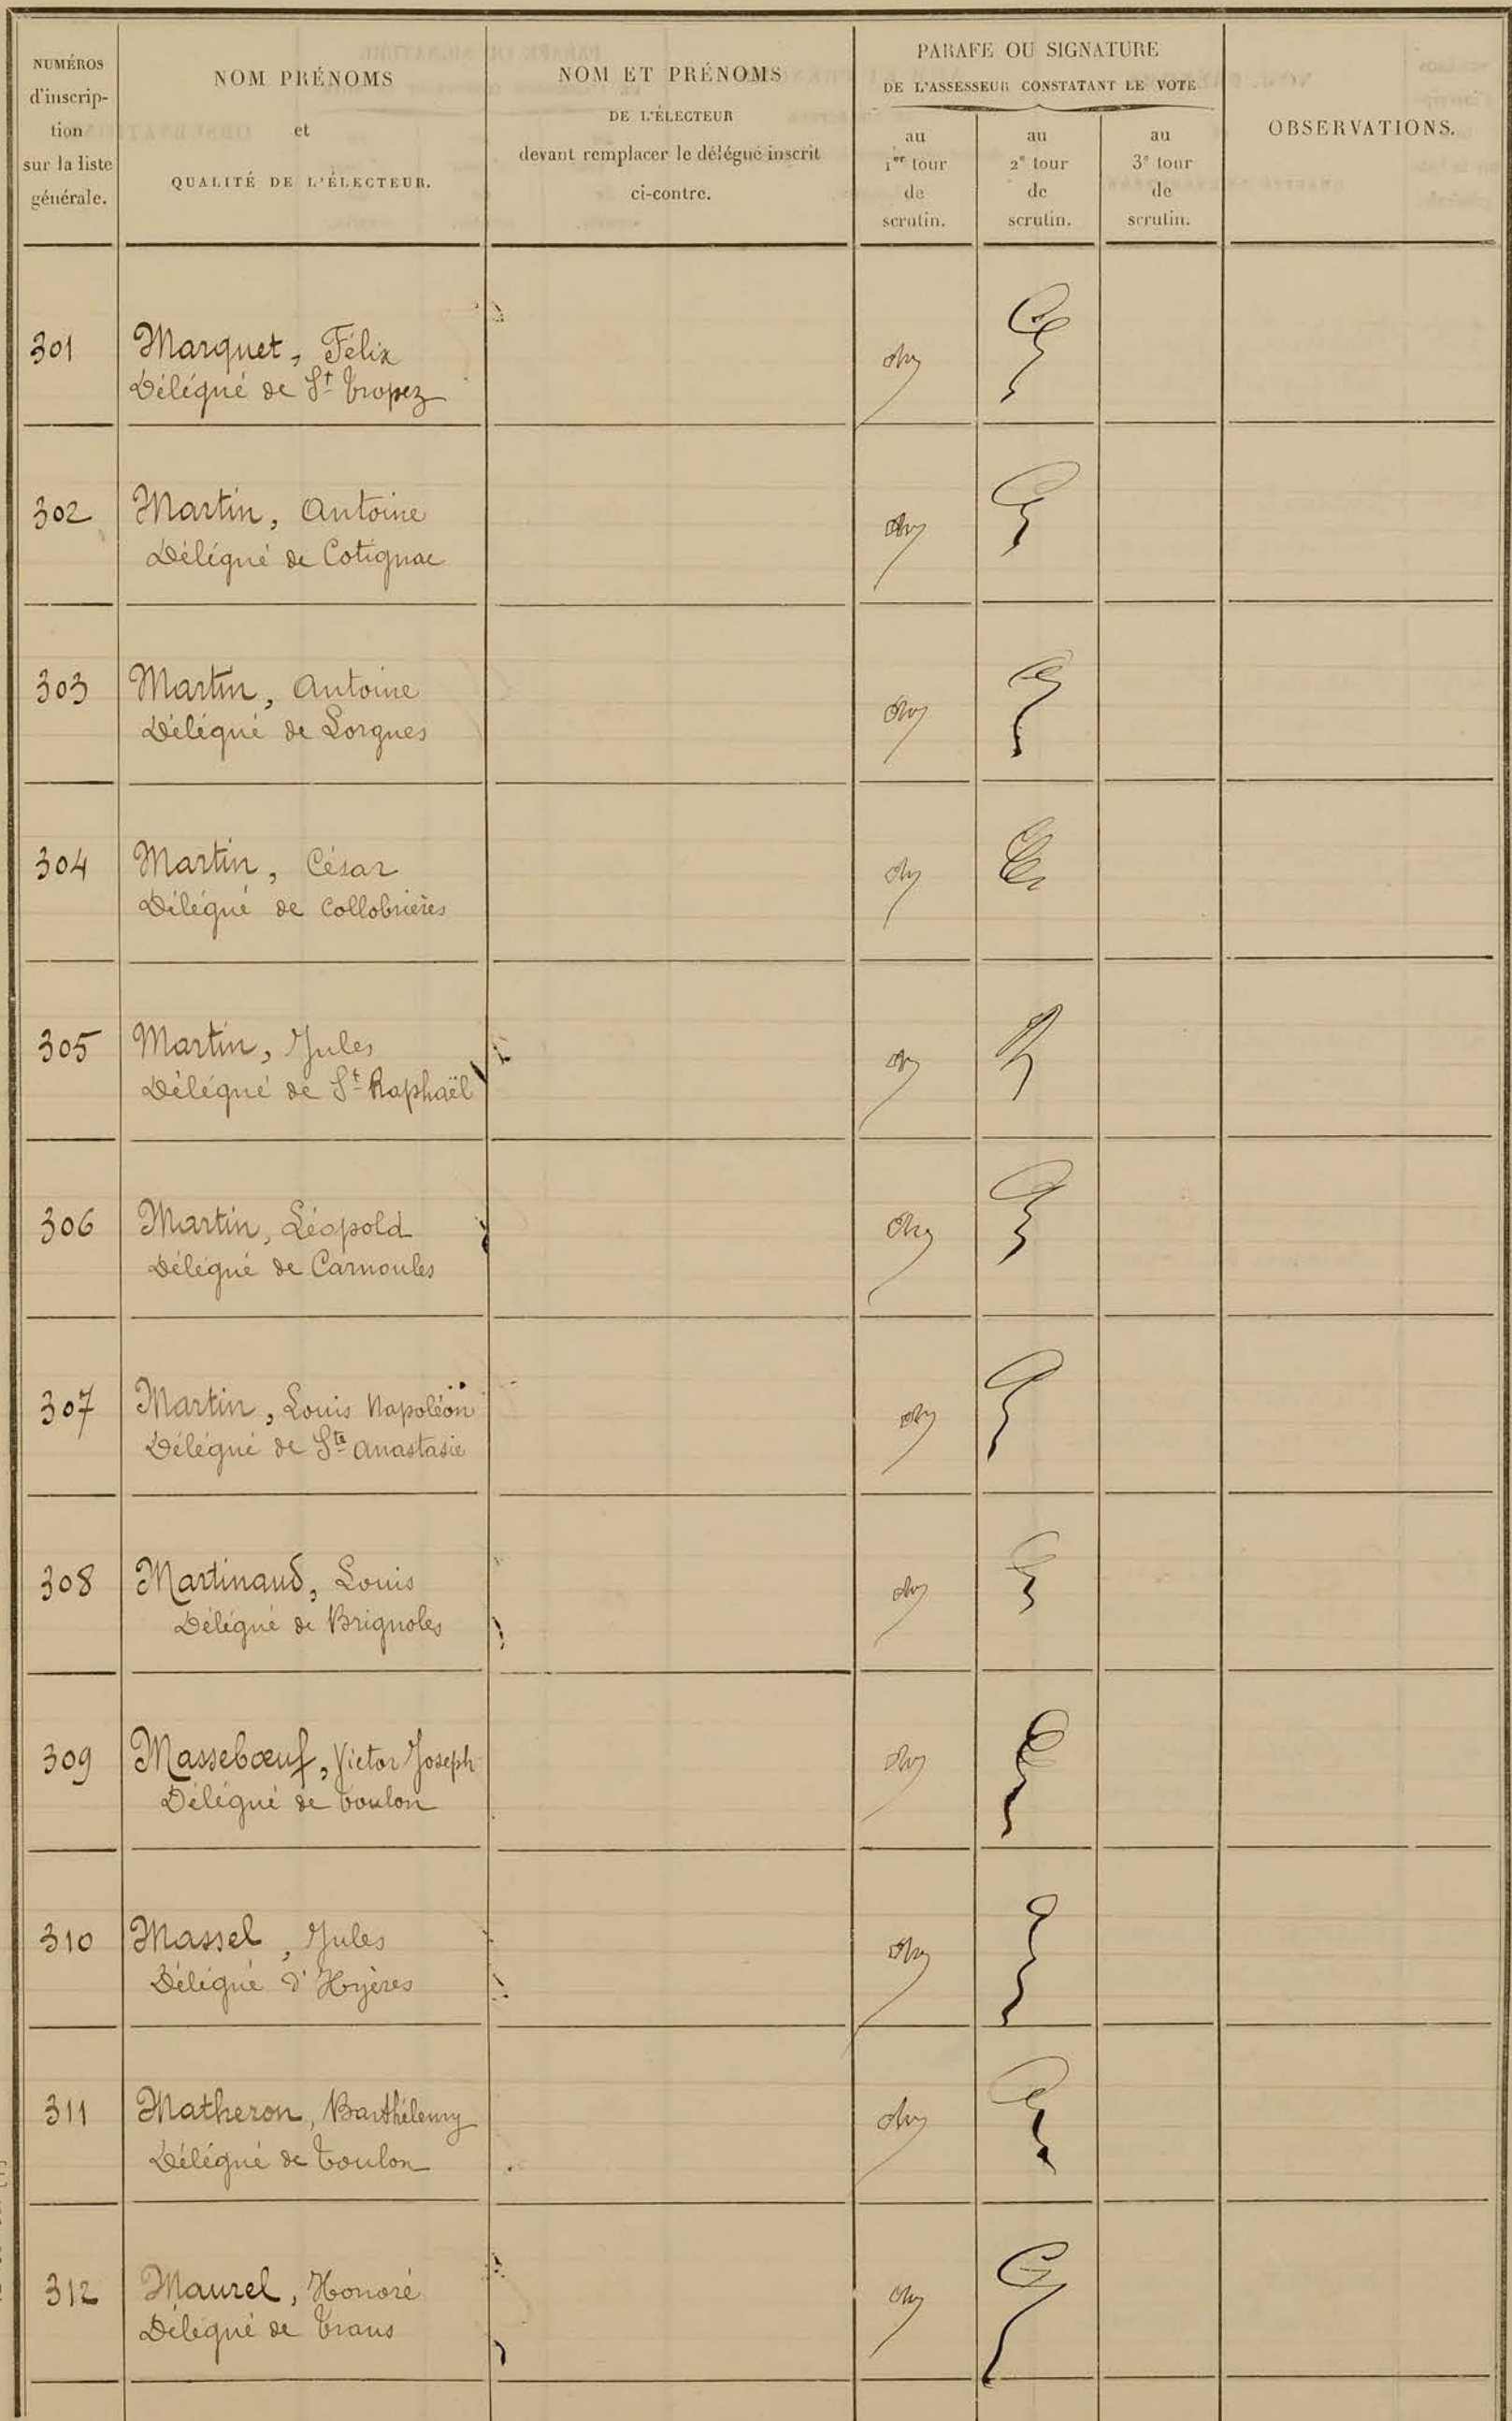 NUMÉROS
d'inscrip-
tion
sur la liste
générale.
NOM PRÉNOMS
et
QUALITÉ DE L'ÉLECTEUR.
NOM ET PRÉNOMS
DE L'ÉLECTEUR
devant remplacer le délégué inscrit
ci-contre.
PARAFE OU SIGNATURE
DE L'ASSESSEUR CONSTATANT LE VOTE
au
1er tour
de
scrutin.
au
2e tour
de
scrutin.
au
3e tour
de
scrutin.
OBSERVATIONS.
301 Marquet, Félix
Délégué de St Tropez
302 Martin, Antoine
Délégué de Cotignac
303 Martin, Antoine
Délégué de Lorgues
304 Martin, César
Délégué de Collobrières
305 Martin, Jules
Délégué de St Raphaël
306 Martin, Léopold
Délégué de Carnoules
307 Martin, Louis Napoléon
Délégué de Ste Anastasie
308 Martinaud, Louis
Délégué de Brignoles
309 Massebœuf, Victor Joseph
Délégué de Toulon
310 Massel, Jules
Délégué d'Hyères
311 Matheron, Barthélemy
Délégué de Toulon
312 Maurel, Honoré
Délégué de Trans